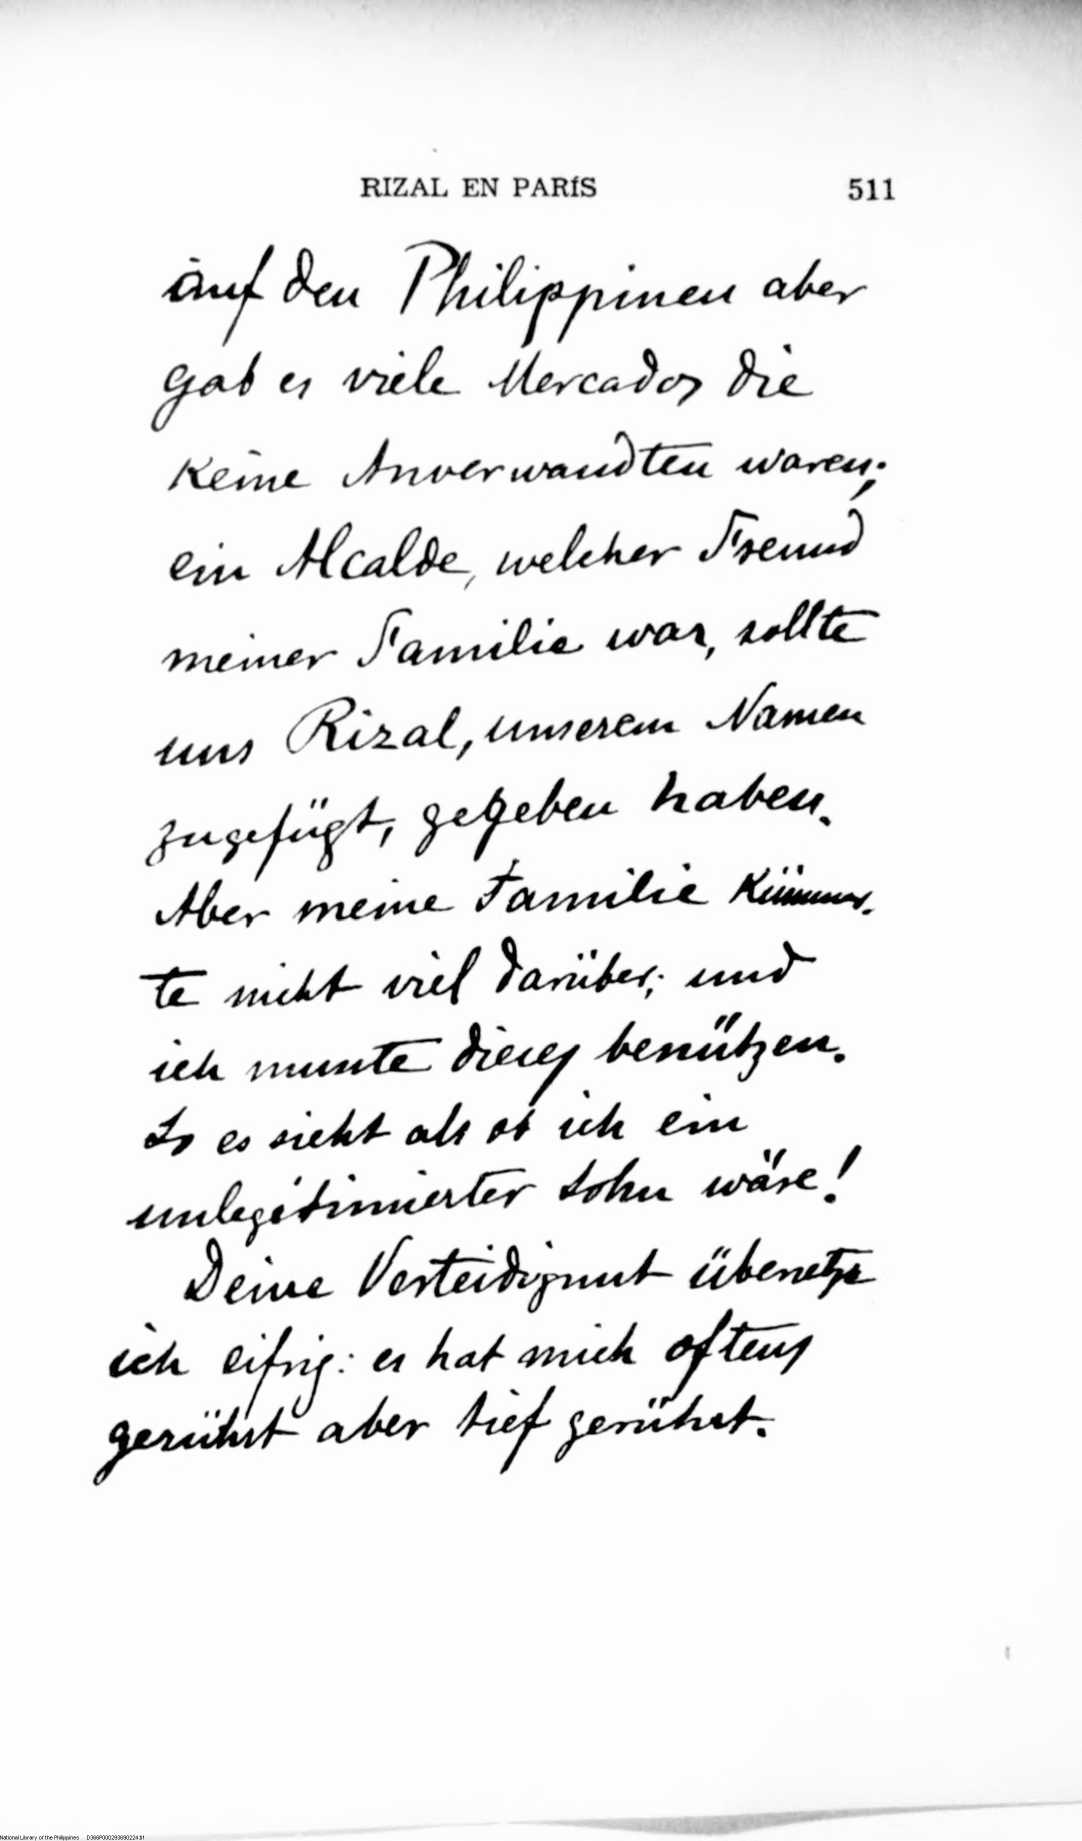 RIZAL EN PARÍS 511
auf den Philippinen aber
gab es viele Mercados die
keine Anverwandten waren;
ein Alcalde, welcher Freund
meiner Familie war, sollte
uns Rizal, unserem Namen
zugefügt, gegeben haben.
Aber meine Familie kümmer-
te nicht viel darüber; und
ich musste dieses benützen.
So es sieht als ob ich ein
unlegitimierter Sohn wäre!
Deine Verteidigung übersetze
ich eifrig: es hat mich oftens
gerührt aber tief gerührt.
National Library of the Philippines